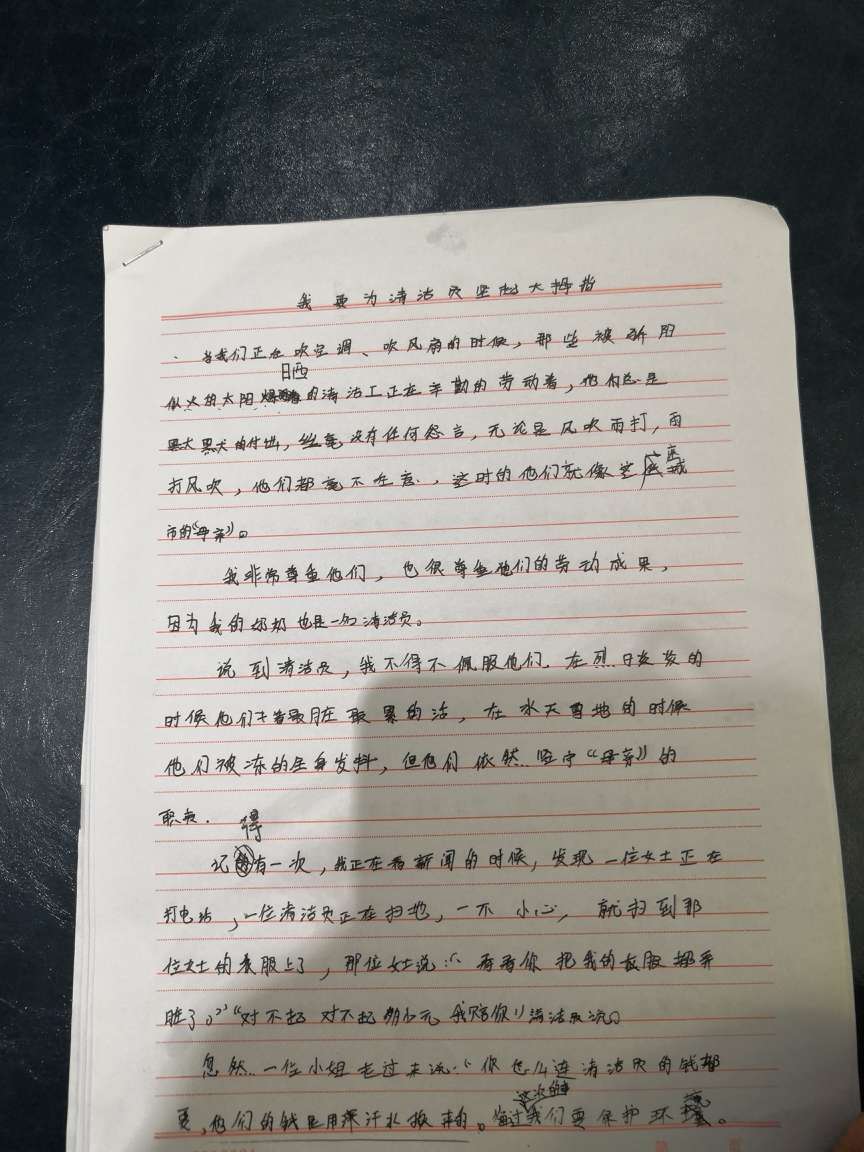 我要为清洁员竖起大拇指
当我们正在吹空调、吹风扇的时候，那些被
似火的太阳晒的清洁工正在辛勤的劳动着，他们总是
默默的付出，丝毫没有任何怨言，无论是风吹雨打，雨
打风吹，他们都毫不在意，这时的他们就像这座城
市的“母亲”。
我非常尊重他们，也很尊重他们的劳动成果，
因为我的奶奶也是一名清洁员。
说到清洁员，我不得不佩服他们，在烈日炎炎的
时候他们干着最脏最累的活，在冰天雪地的时候
他们被冻的全身发抖，但他们依然坚守“母亲”的
职责.
记得有一次，我正在看新闻的时候，发现一位女士正在
打电话，一位清洁员正在扫地，一不小心，就扫到那
位女士的衣服上了，那位女士说：“看看你把我的衣服都弄
脏了。”“对不起 对不起 多少元 我赔你”清洁员说。
忽然一位小姐走过来说：“你怎么连清洁员的钱都
要，他们的钱是用汗水换来的。通过这次的事我们要保护环境。